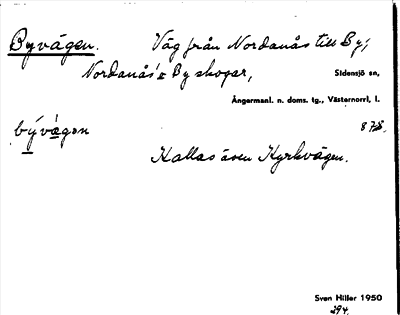 Byvägen. Väg från Nordanås till By;
Nordanås' o By skogar,
Sidensjö sn,
Ångermanl. n. doms. tg., Västernorrl. l.
bývägen 878.
Kallas även Kyrkvägen.
Sven Hiller 1950
294.